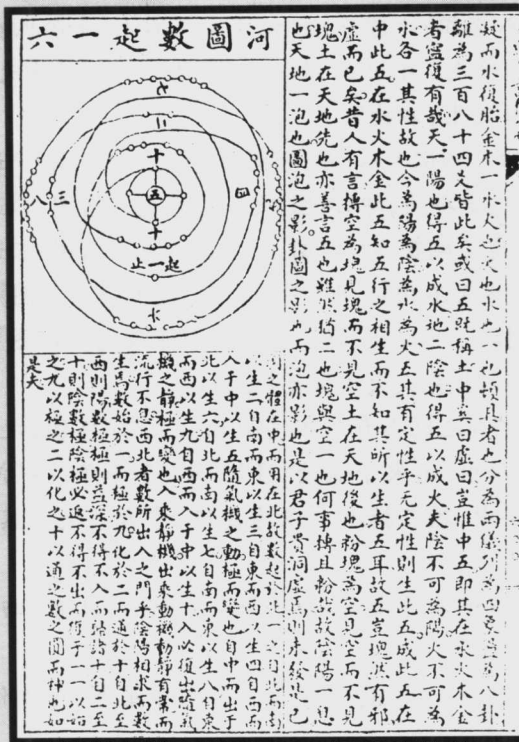 凝而水復胎金木一水火也火也水也一也頓具者也分為兩儀列為四象重為八卦
離為三百八十四爻皆此矣或曰五既稱土中矣曰虛曰豈惟中五即其在水火木金
者寧復有哉天一陽也得五以成水地二陰也得五以成火夫陰不可為陽火不可為
水各一其性故也今為陽為陰為水為火五其有定性乎无定性則生此五成此五在
中此五在水火木金此五知五行之相生而不知其所以生者五耳故五豈塊然有邪
虛而已矣昔人有言摶空為塊見塊而不見空土在天地後也粉塊為空見空而不見
塊土在天地先也亦善言五也雖然猶二也塊與空一也何事摶且粉哉故陰陽一息
也天地一泡也圖泡之影卦圖之影也而泡亦影也是以君子貴洞虛焉則未發是已
河圖數起一六
七
二
十
五
十
三
八
四
九
起一止
六
圖之體在中而用在北故數起於北一之自北而南
以生二自南而東以生三自東而西以生四自西而
入于中以生五隨氣機之動極而變也自中而出于
北以生六自北而南以生七自南而東以生八自東
而西以生九自西而入于中以生十入以復出隨氣
機之靜極而變也入來靜機出來動機動靜有常而
流行不息西北者數所出入之門乎陰陽相求而數
生焉數始於一而極於九化於二而通於十自北至
西則陽數極極則益深不得不入而歸諸十自二至
十則陰數極陰極必返不得不出而復于一一以始
之九以極之二以化之十以通之數之圓而神也如
是夫